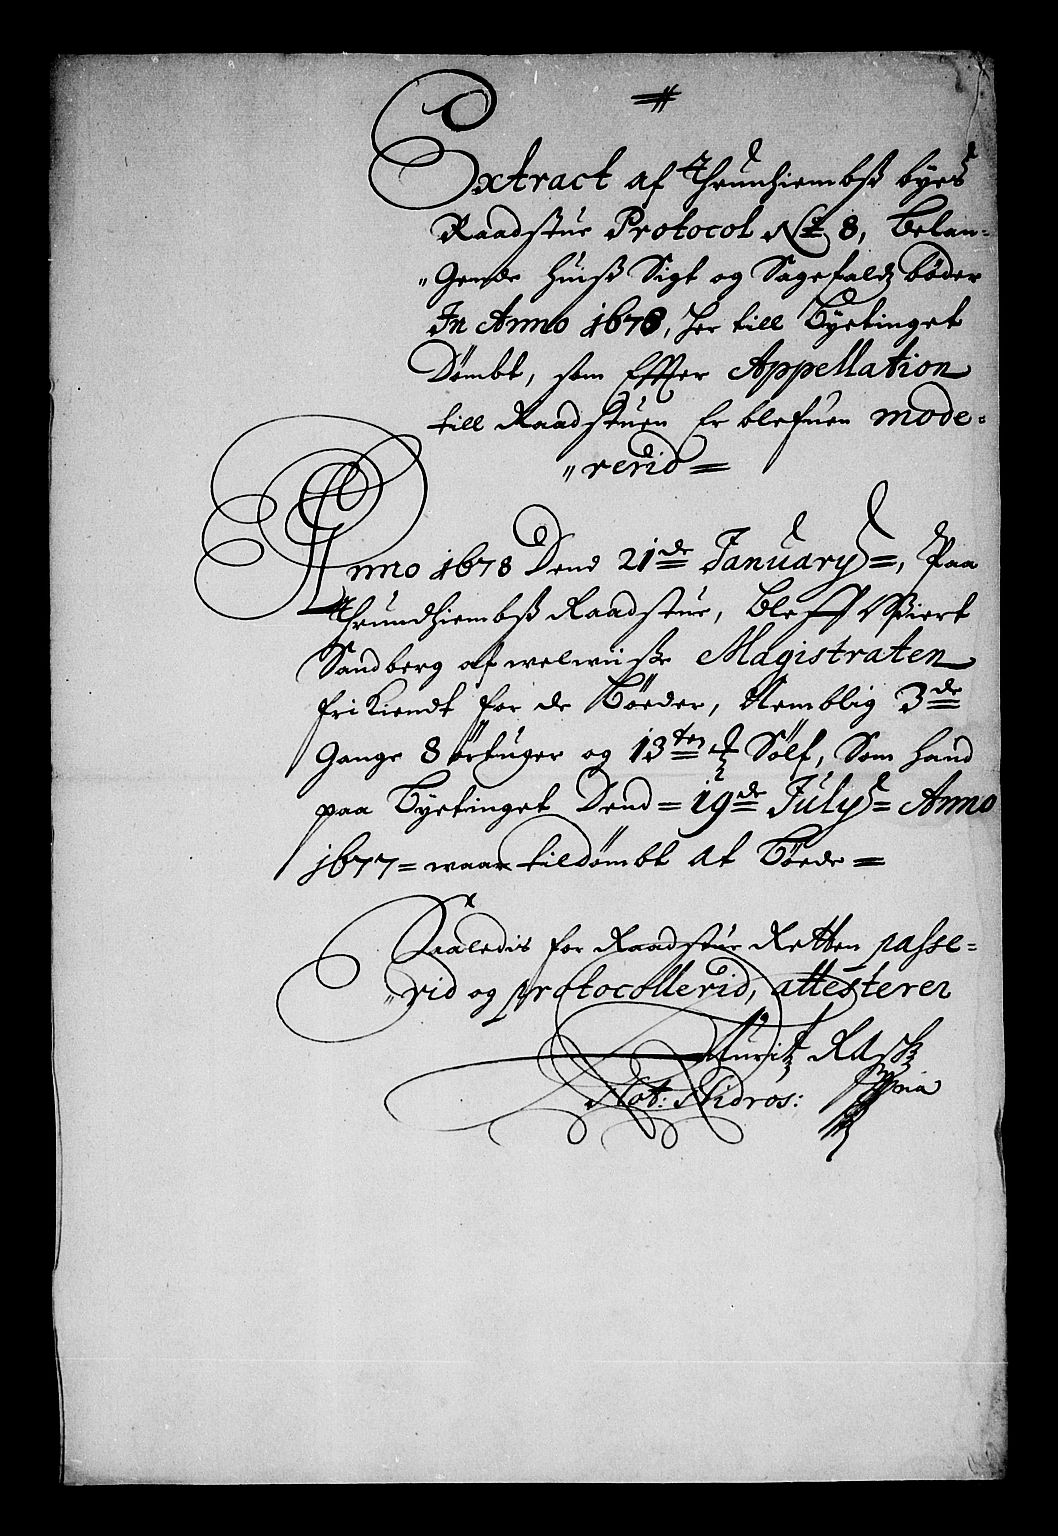 Extract af Thrunhiembß byes
Raadstue Protocol No 8, Belan-
"gende huiß Sigt og Sagefaldz bøder
In Anno 1678, her till Byetinget
Dømbt, som Effter Appellation
till Raadstuen Er blefuen mode-
"rerid =
Anno 1678 Dend 21de January =, Paa
Thrundhiembß Raadstue, bleff
Sandberg af welwiiße Magistraten
frikiendt for de Bøeder, Nemblig 3de
gange 8 örtuger og 13ten Sølf, Som hand
paa Byetinget Dend = 19de July = Anno
1677 = waar tildømbt at Bøede =
Saaledis for Raadstue Retten passe-
"rid og protocollerid, attesterer
Auritz Rask
Not: Nidros: mpria